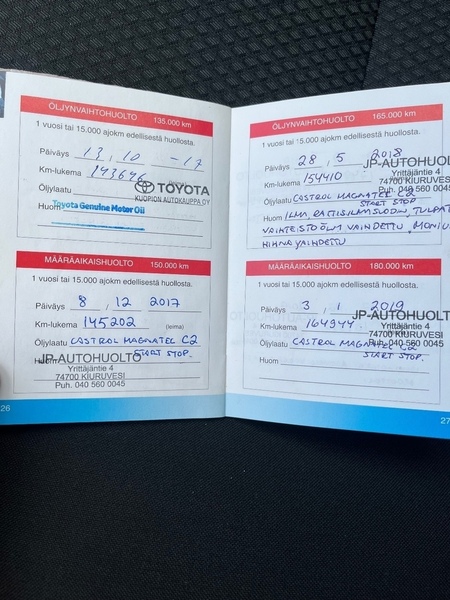 ÖLJYNVAIHTOHUOLTO 135.000 km
1 vuosi tai 15.000 ajokm edellisestä huollosta.
Päiväys 13 , 10 -17
Km-lukema 143646
Öljylaatu
TOYOTA
KUOPION AUTOKAUPPA OY
Huom
Toyota Genuine Motor Oil
MÄÄRÄAIKAISHUOLTO 150.000 km
1 vuosi tai 15.000 ajokm edellisestä huollosta.
Päiväys 8 , 12 2017
Km-lukema 145202 (leima)
Öljylaatu CASTROL MAGNATEC C2
START STOP.
Huom
JP-AUTOHUOLTO
Yrittäjäntie 4
74700 KIURUVESI
Puh. 040 560 0045
26
ÖLJYNVAIHTOHUOLTO 165.000 km
1 vuosi tai 15.000 ajokm edellisestä huollosta.
Päiväys 28 , 5 2018
Km-lukema 154410
JP-AUTOHUOL
Yrittäjäntie 4
74700 KIURUVES
Puh. 040 560 0045
Öljylaatu CASTROL MAGNATEC C2
START STOP
Huom ILMA, RAITISILMASUODIN, TULPAT
VAIHTEISTOÖLJY VAIHDETTU, MONIU
HIHNA VAIHDETTU
MÄÄRÄAIKAISHUOLTO 180.000 km
1 vuosi tai 15.000 ajokm edellisestä huollosta.
Päiväys 3 , 1 2019
Km-lukema 164944
JP-AUTOHUOL
Yrittäjäntie 4
74700 KIURUVESI
Puh. 040 560 0045
Öljylaatu CASTROL MAGNATEC C2
START STOP.
Huom
27